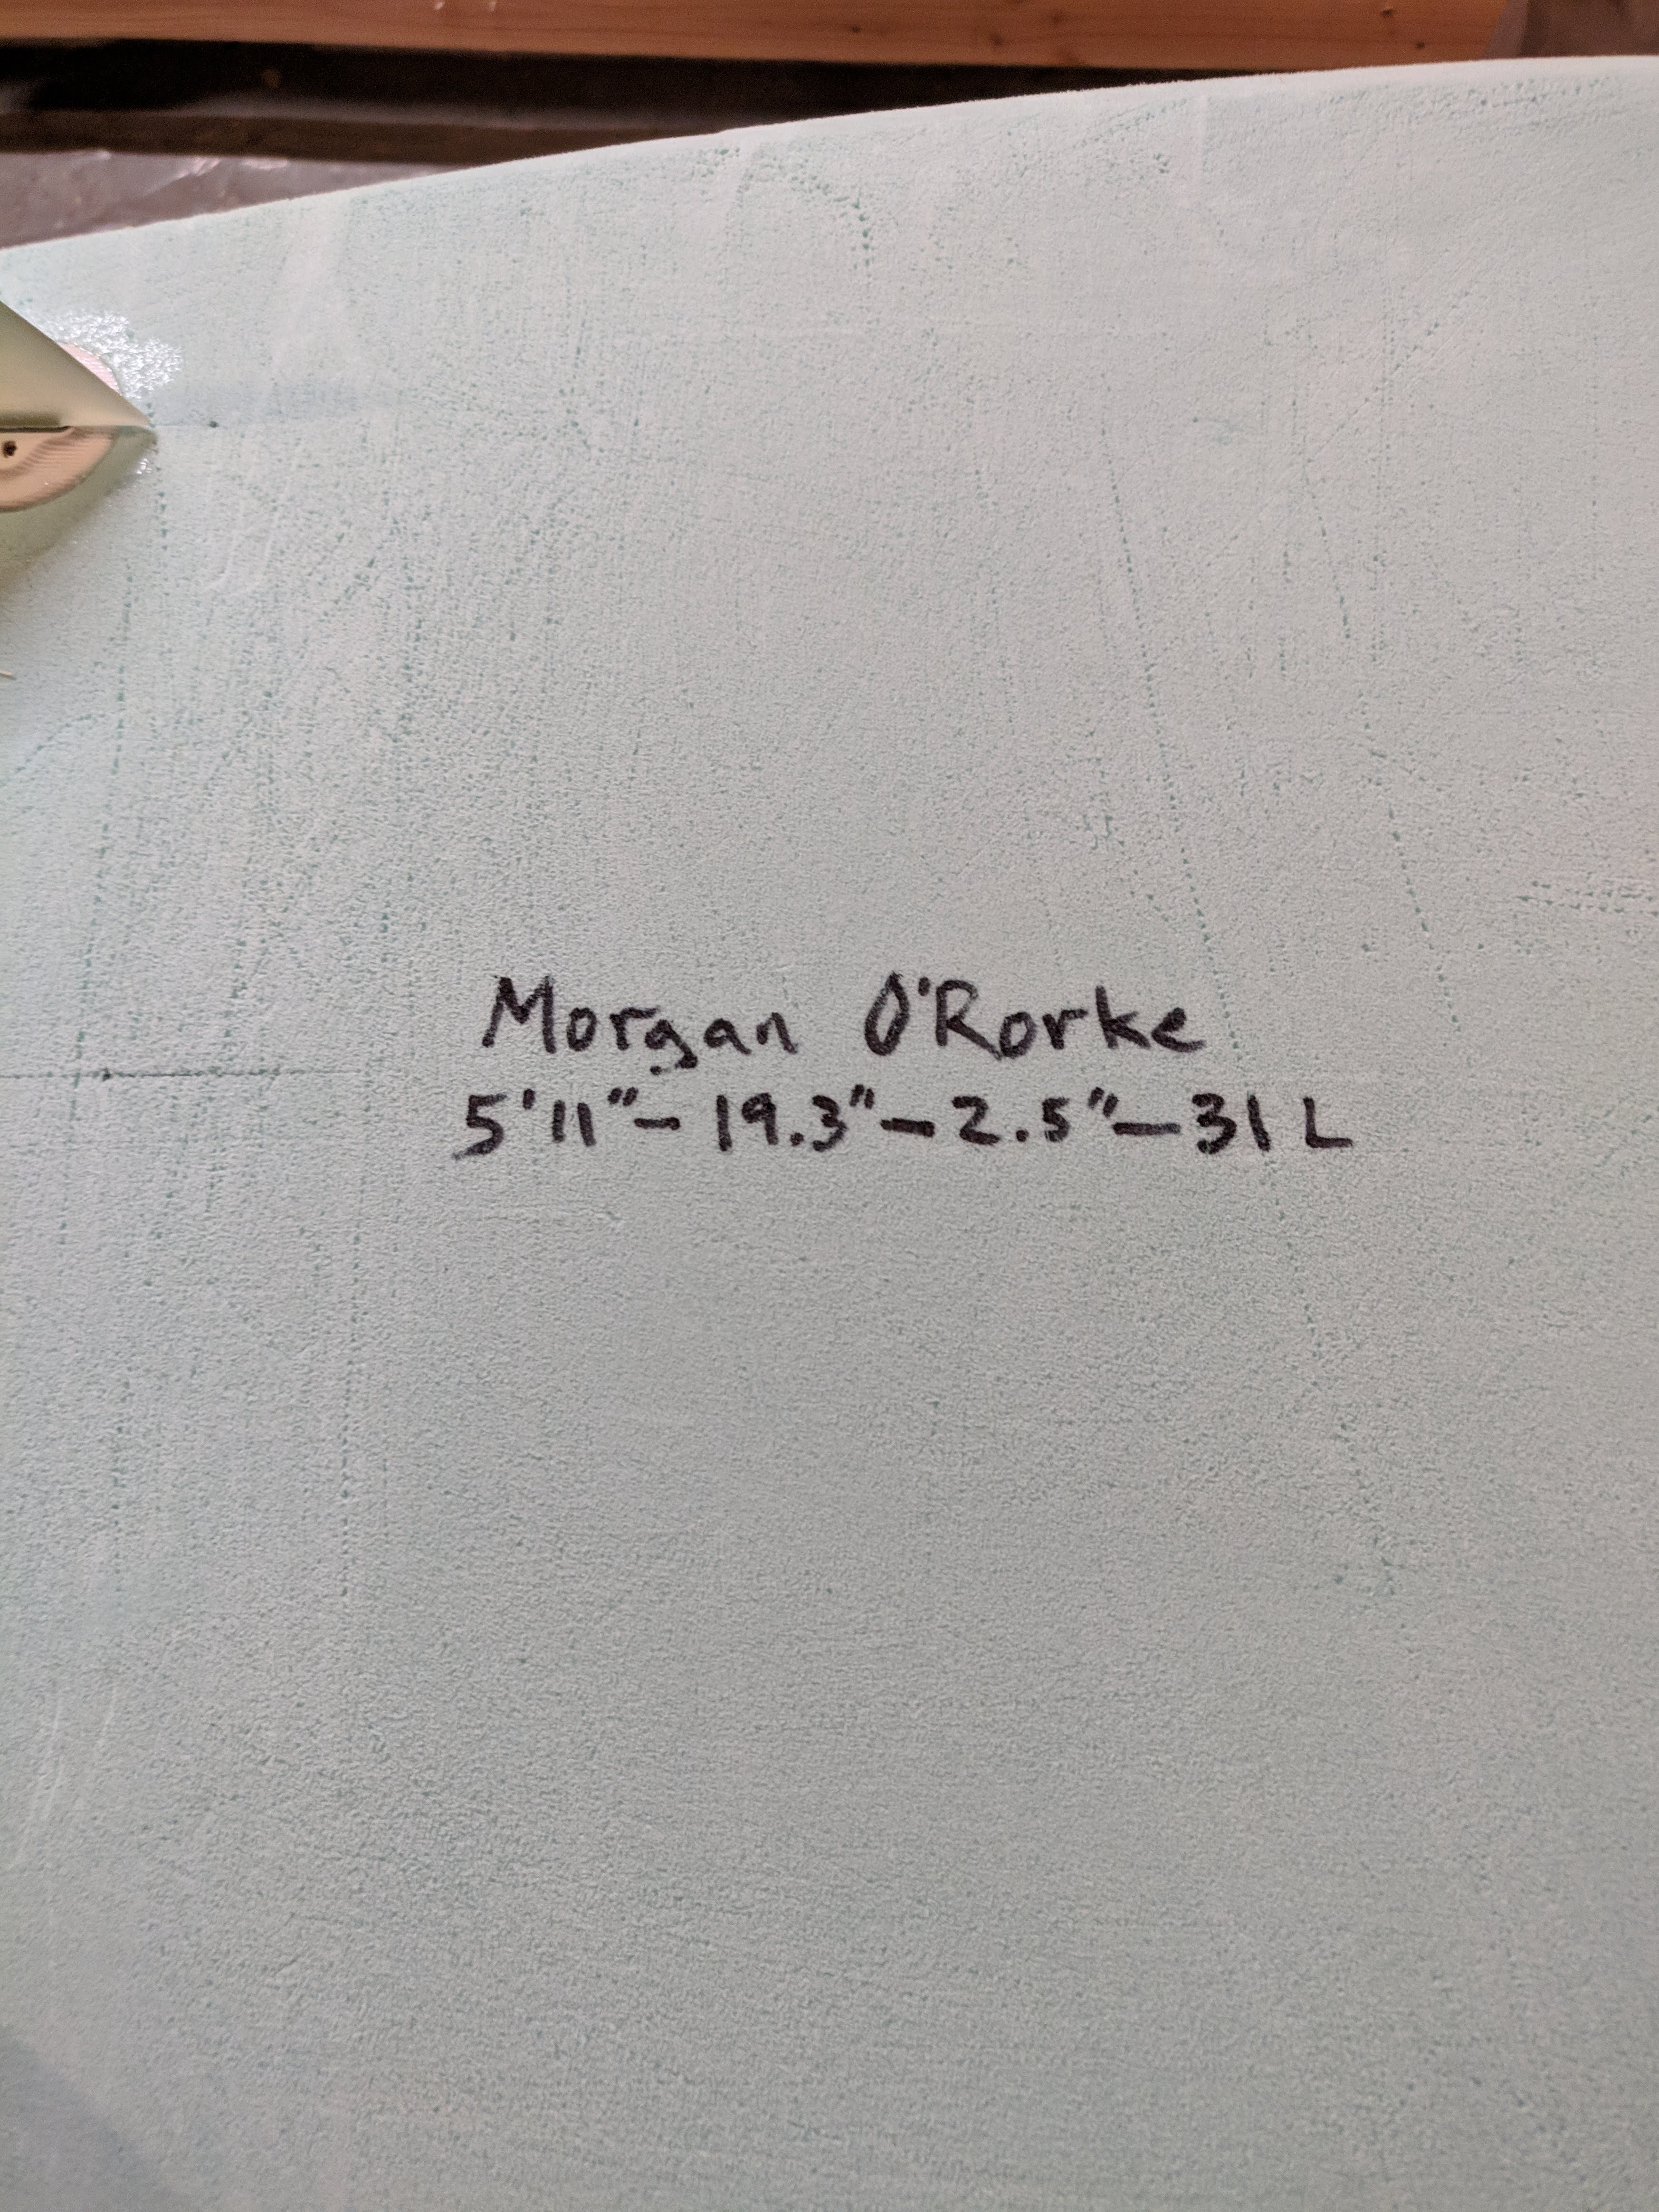 Morgan O'Rorke
5'11"-19.3"-2.5"-31 L